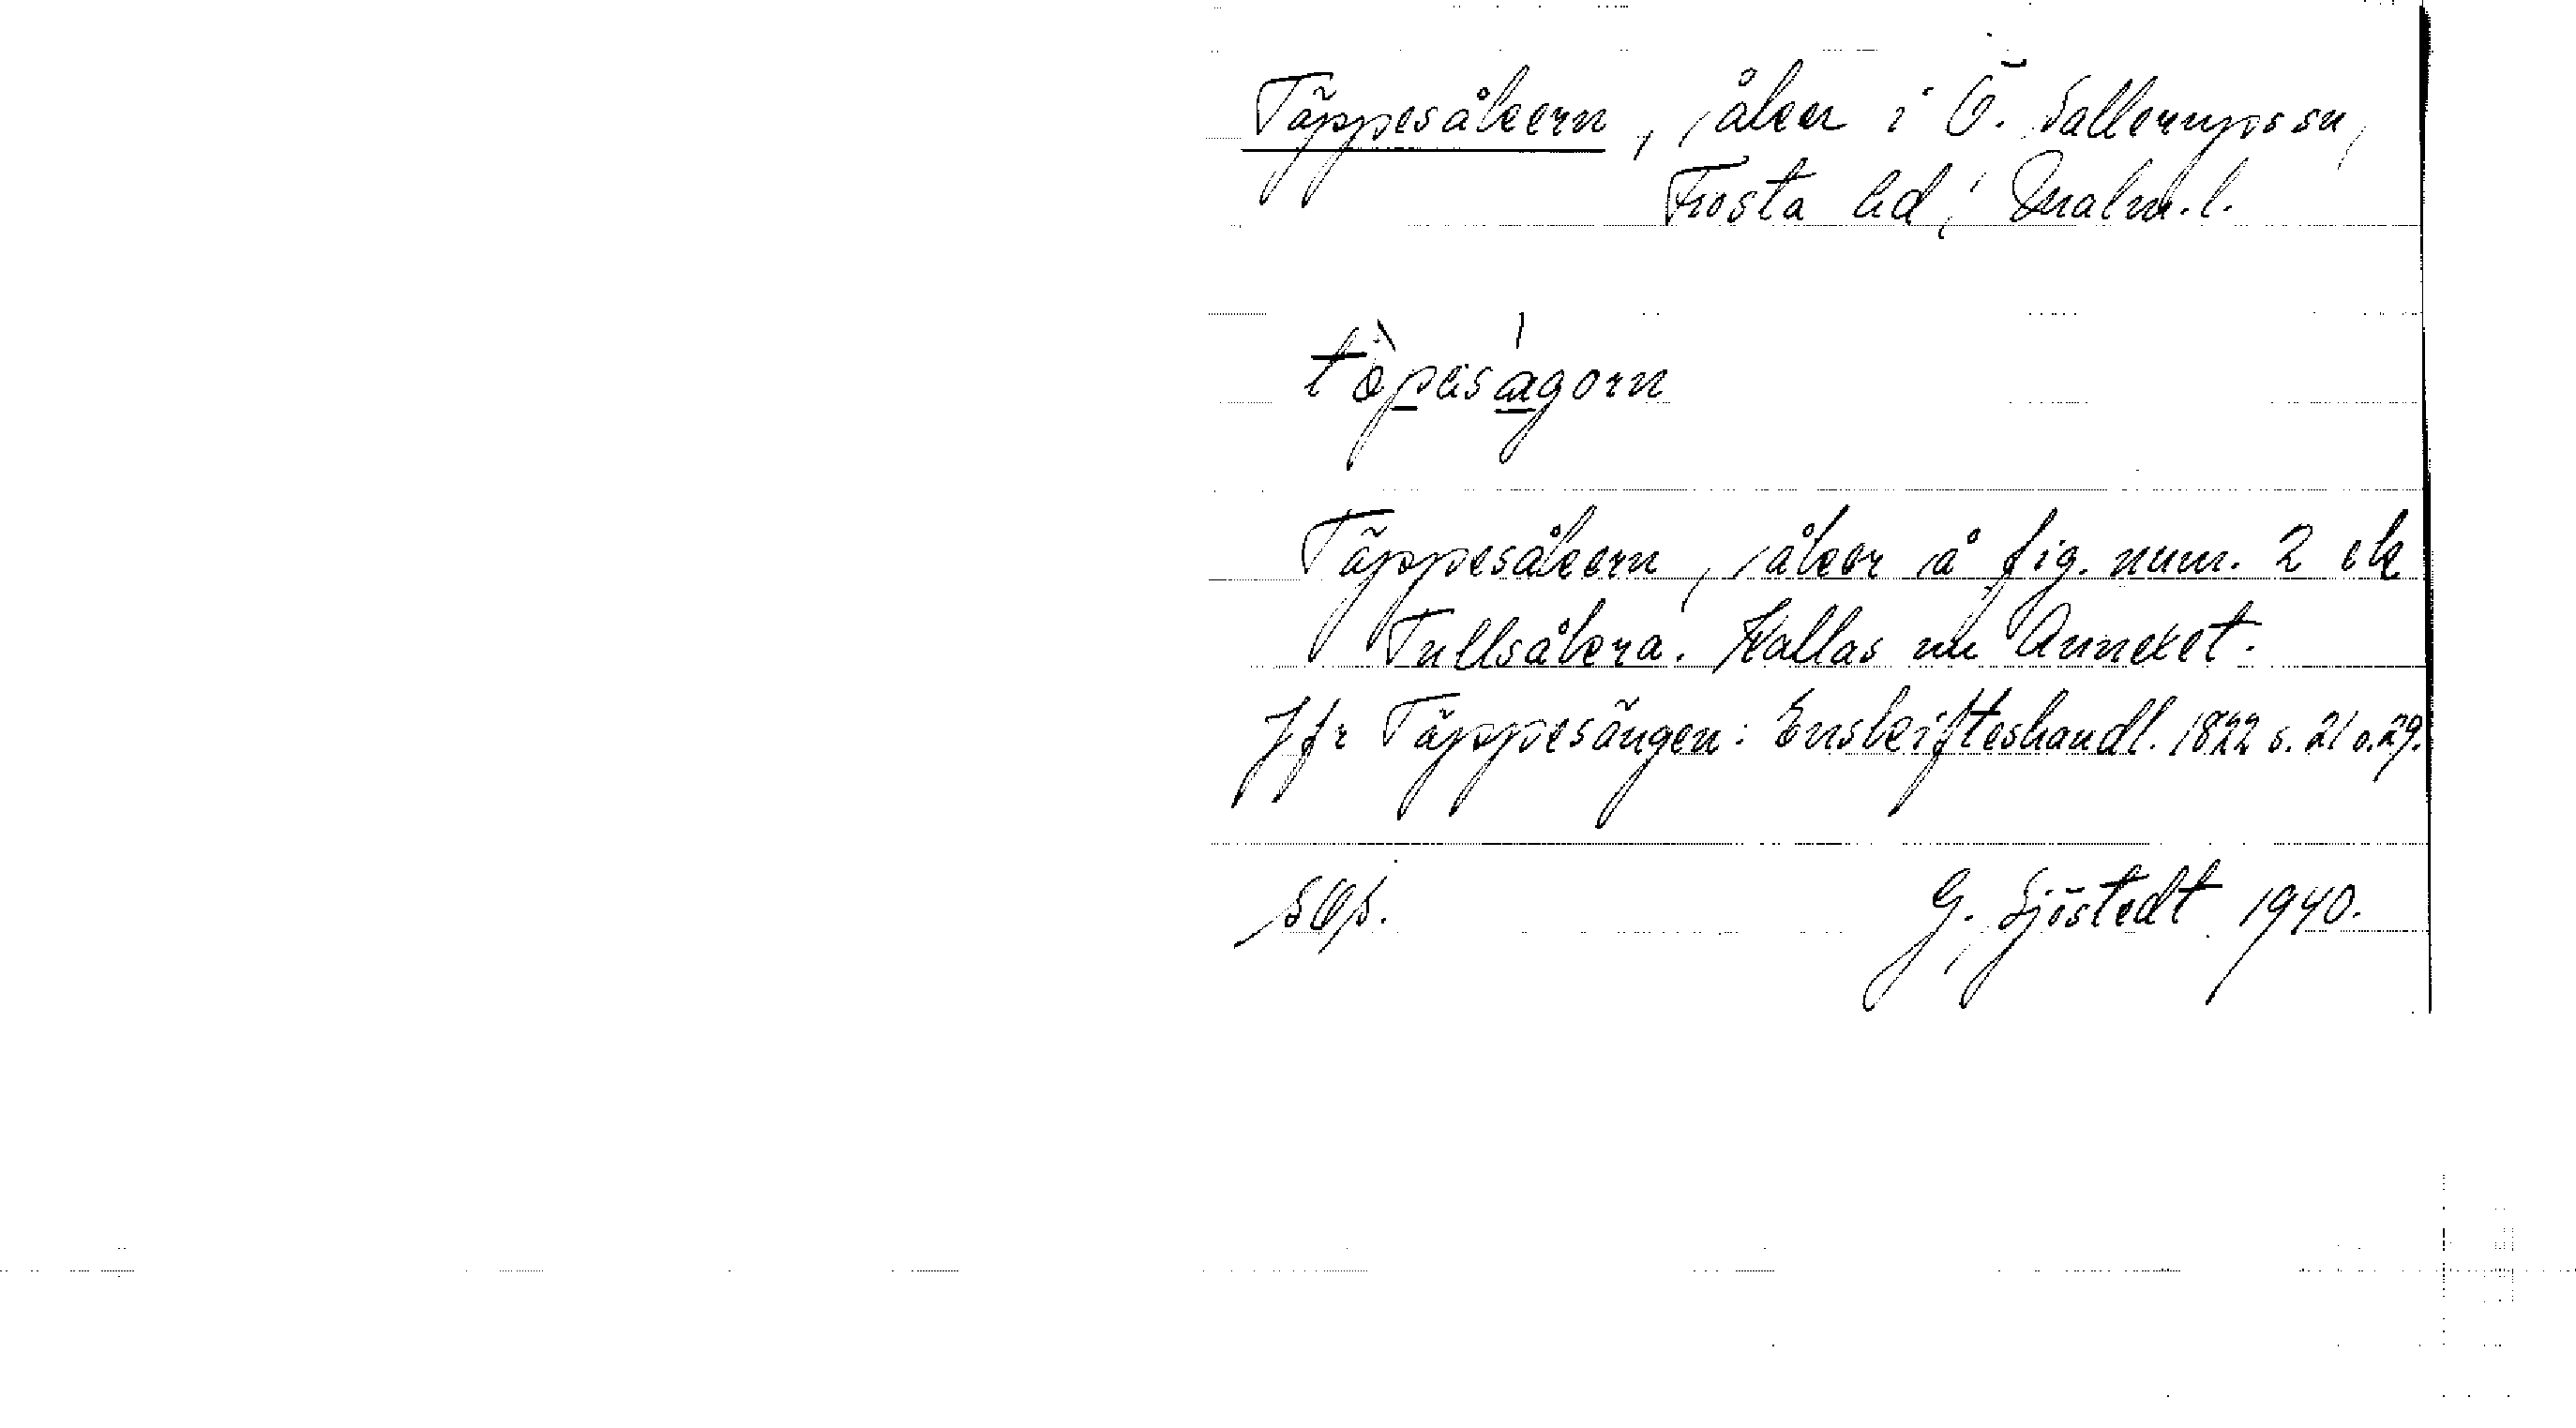 Täppesåkern, åker i Ö. Sallerups sn,
Frosta hd, Malm. l.
Täppesåkern, åker å fig. num. 2 ek
Tullsåkra. Kallas nu Annexet.
Jfr Täppesängen: Enskifteshandl. 1822 s. 21 o. 29.
G. Sjöstedt 1940.